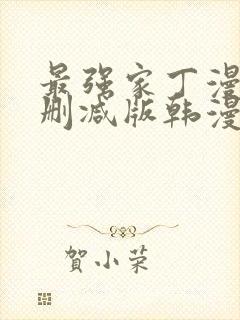 最强家丁漫
删减版韩漫
賀小荣